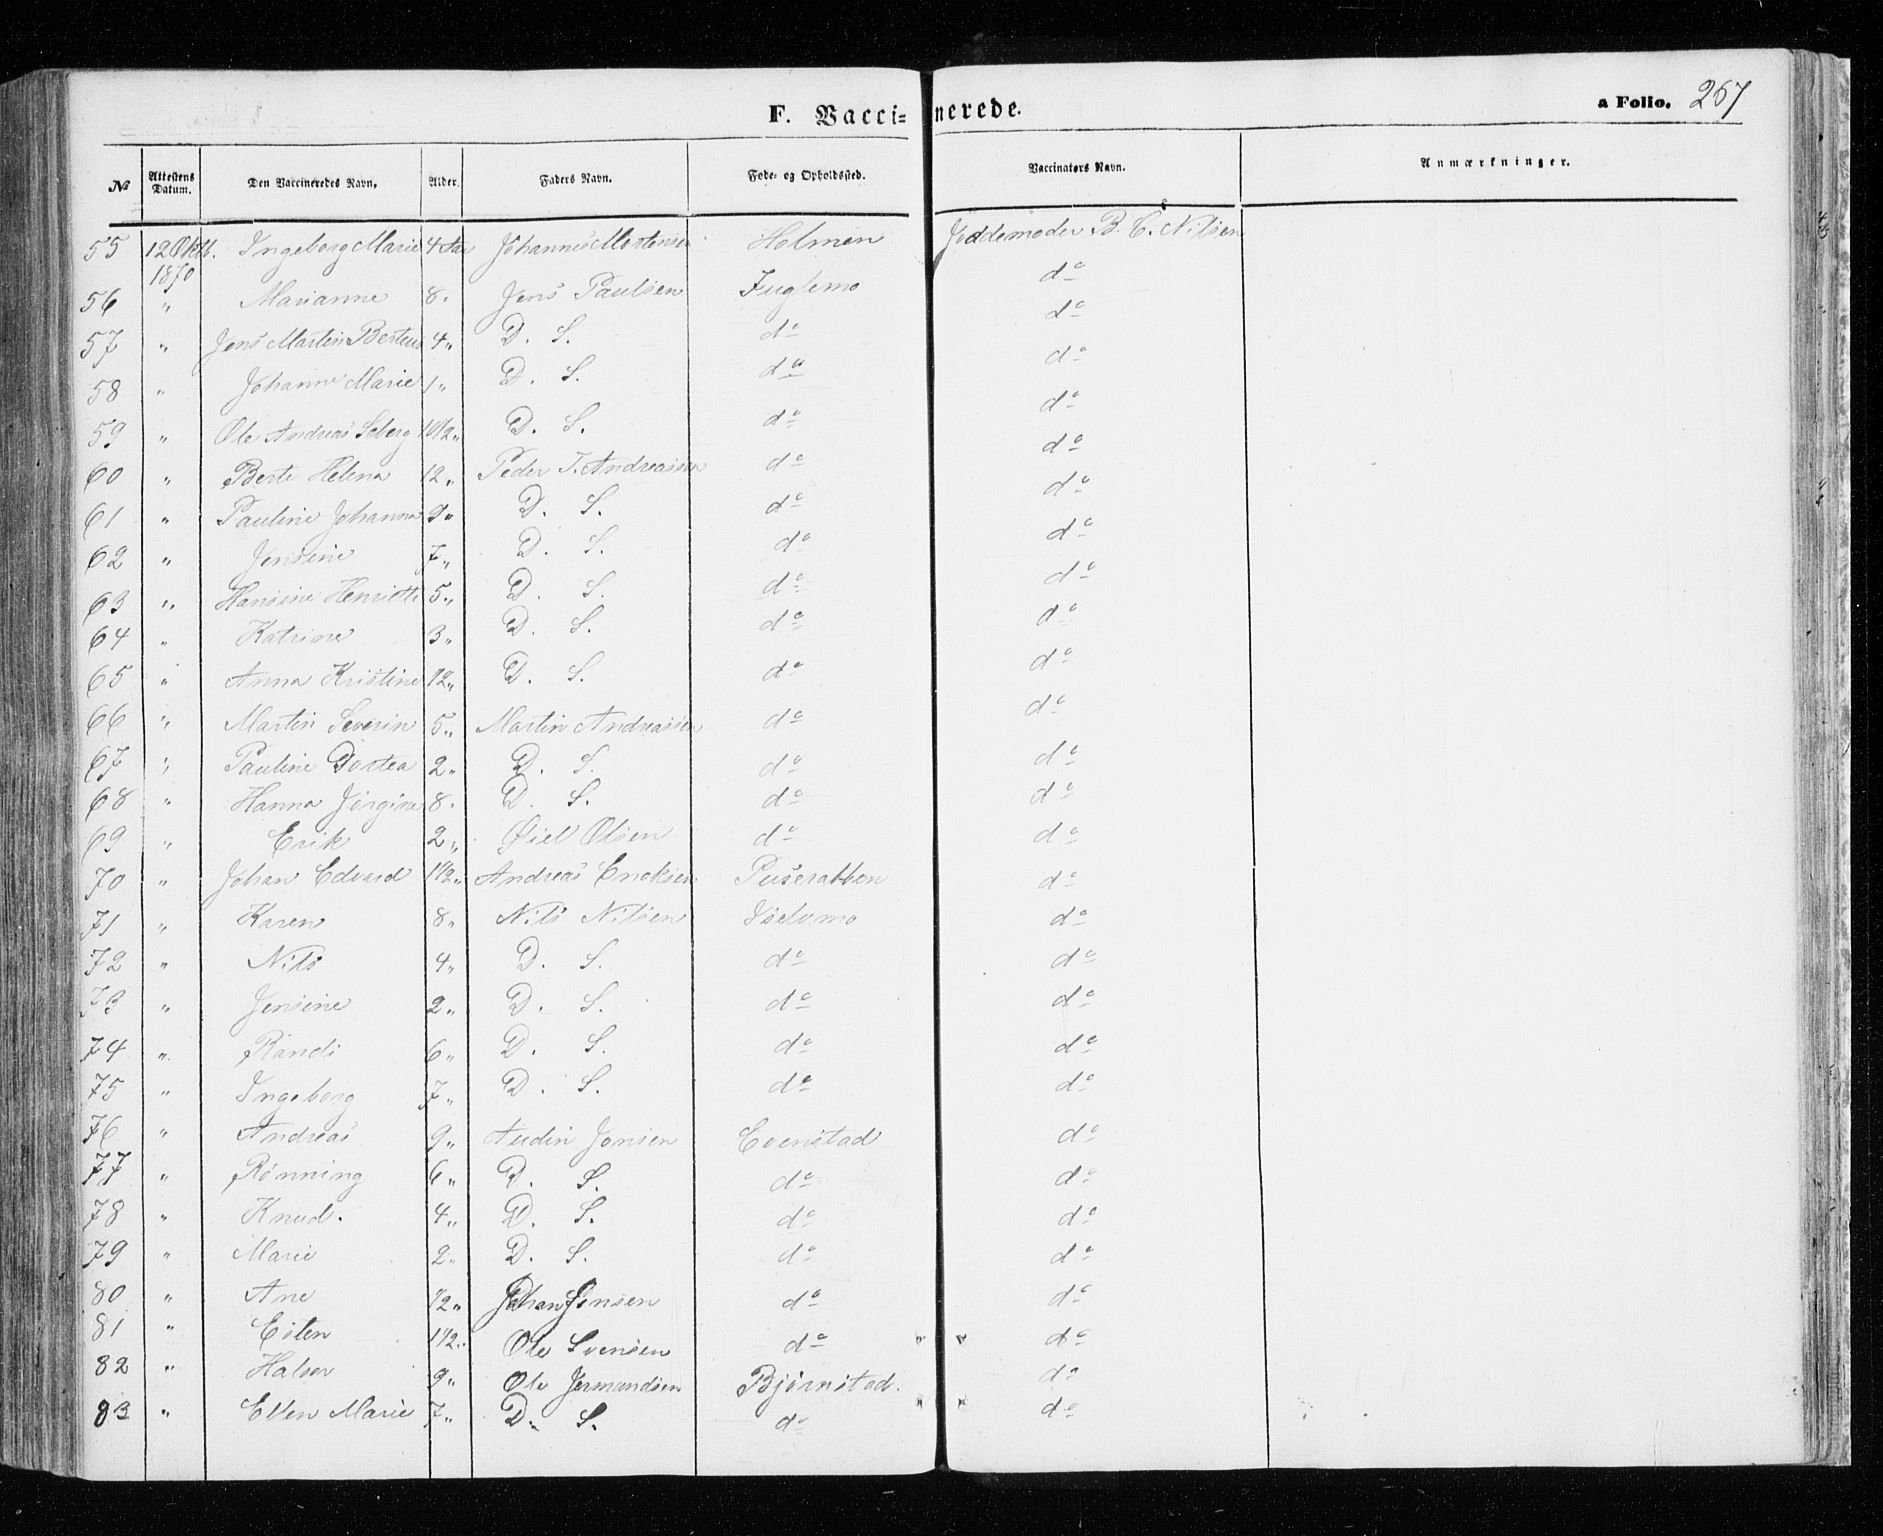 F. Vaccinerede.
a Folio. 267
№ Attestens Datum. Den Vaccineredes Navn. Alder. Faders Navn. Føde- og Opholdssted. Vaccinators Navn. Anmærkninger.
55 12 Oktb. 1870 Ingeborg Marie 4 Aar Johannes Mortensen Holmen Joddemoder B. C. Nilsen
56 " Marianne 8 " Jens Paulsen Fuglemo do
57 " Jens Martin Berteus 4 " D. S. do do
58 " Johanne Marie 1 " D. S. do do
59 " Ole Andreas Seberg 10 1/2 " D. S. do do
60 " Berte Helena 12 " Peder J. Andreassen do do
61 " Pauline Johanna 9 " D. S. do do
62 " Jensine 7 " D. S. do do
63 " Hansine Henriette 5 " D. S. do do
64 " Katrine 3 " D. S. do do
65 " Anna Kristine 1/2 " D. S. do do
66 " Martin Severin 5 " Martin Andreassen do do
67 " Pauline Dortea 2 " D. S. do do
68 " Hanna Jørgine 8 " D. S. do do
69 " Erik 2 " Øiel Olsen do do
70 " Johan Edvard 1 1/2 " Andreas Ericksen do
71 " Karen 8 " Nils Nilsen do
72 " Nils 4 " D. S. do do
73 " Jensine 2 " D. S. do do
74 " Randi 6 " D. S. do do
75 " Ingeborg 7 " D. S. do do
76 " Andreas 9 " Audin Jonsen Evenstad do
77 " Rønning 6 " D. S. do do
78 " Knud. 4 " D. S. do do
79 " Marie 2 " D. S. do do
80 " Ane 1/2 " Johan Jensen do do
81 " Esten 1 1/2 " Ole Svensen do do
82 " Halvor 9 " Ole Jermundsen Bjørnstad. do
83 " Ellen Marie 7 " D. S. do do